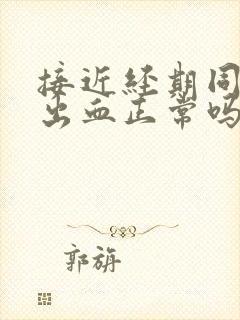 接近经期同
出血正常吗
郭旃